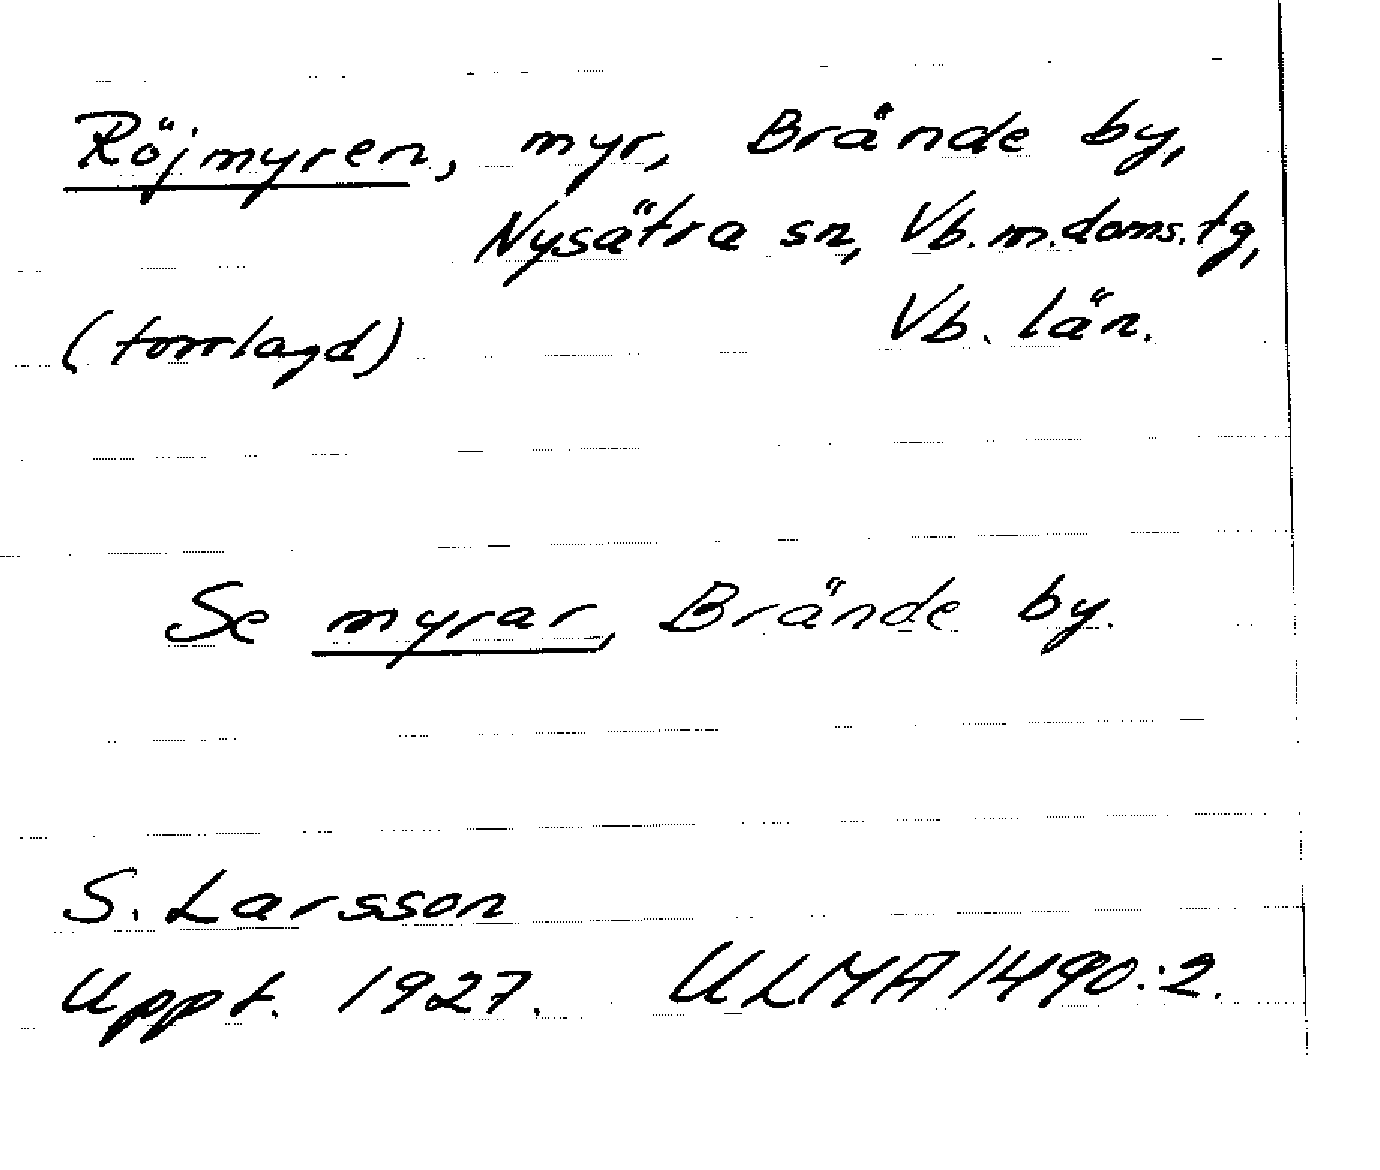 Röjmyren, myr, Brände by,
Nysätra sn, Vb. m. doms. tg,
Vb. län.
(torrlagd)
Se myrar, Brände by.
S. Larsson
Uppt. 1927. ULMA 1490:2.